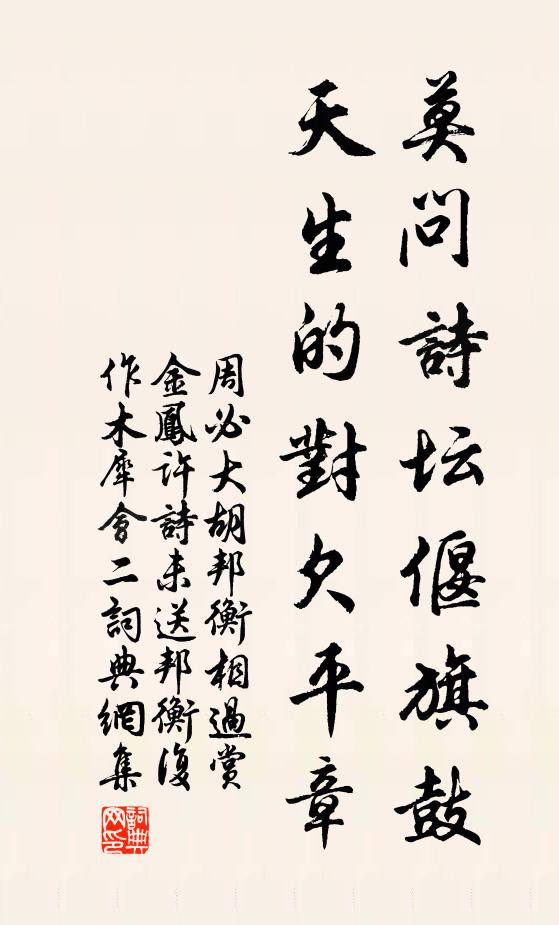 莫問詩坛偃旗鼓
天生的對欠平章
周必大胡邦衡相過賞
金鳳许詩未送邦衡復
作木犀會二詞典網集
詞典
网印